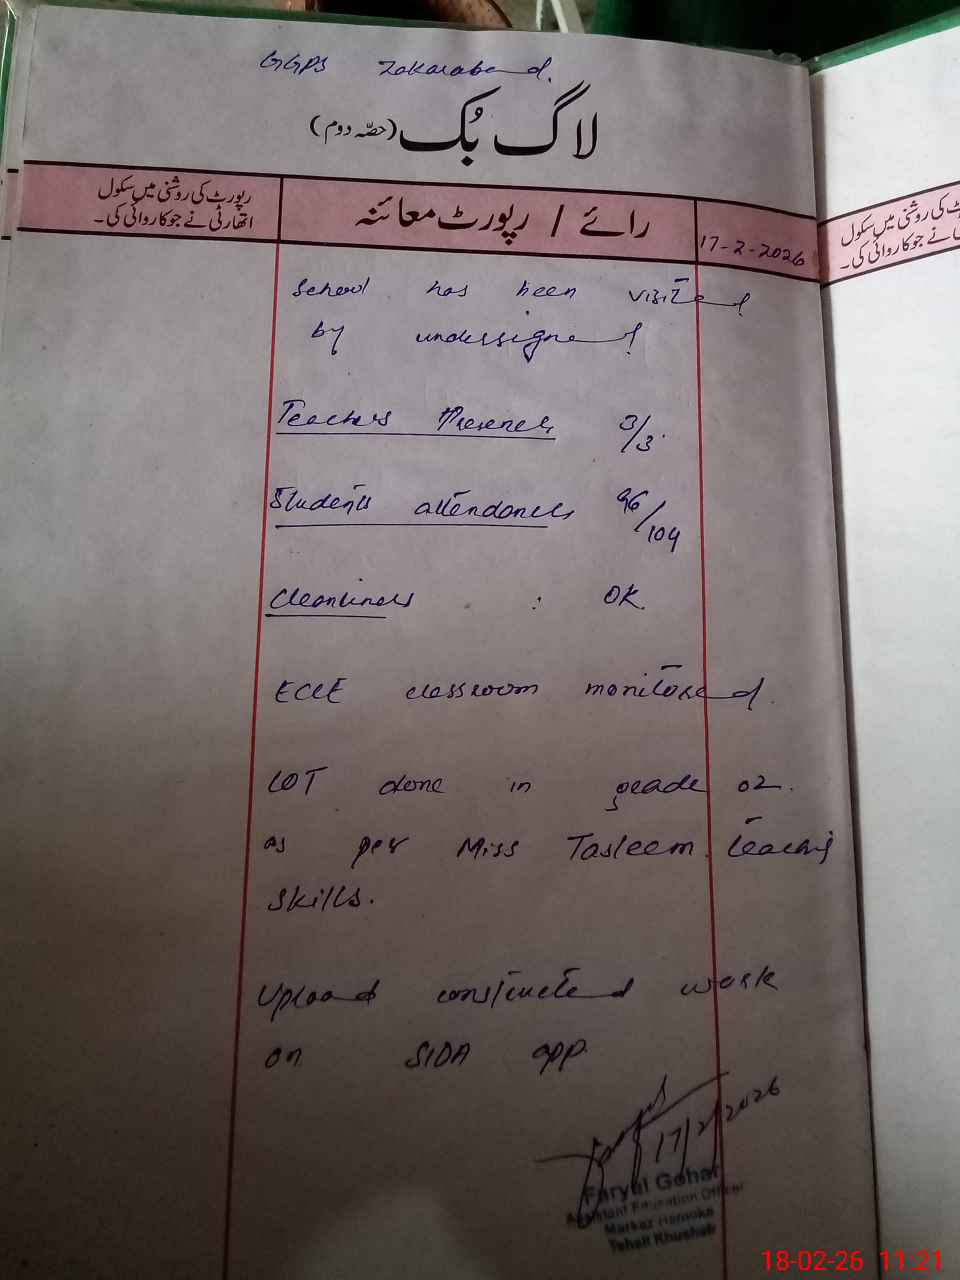 GGPS Zakaraband.
لاگ بُک (حصّہ دوم)
رپورٹ کی روشنی میں سکول
اتھارٹی نے جو کاروائی کی۔
رائے / رپورٹ معائنہ
17-2-2026
ٹ کی روشنی میں سکول
نے جو کاروائی کی۔
School has been visited
by undersigned
Teachers Presence 3/3.
Students attendance 96/104
Cleanliness : OK.
ECCE classroom monitored.
LOT done in grade 02.
as per Miss Tasleem teaching
skills.
Upload constructed work
on SIDA app.
17/2/2026
Faryal Gohar
Assistant Education Officer
Markaz
Tehsil Khushab
18-02-26 11:21